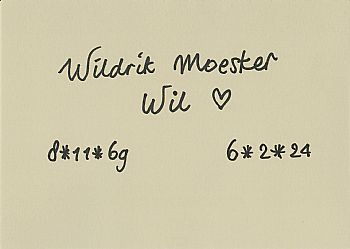 Wildrik Moester
Wil ♡
8*11*69 6*2*24